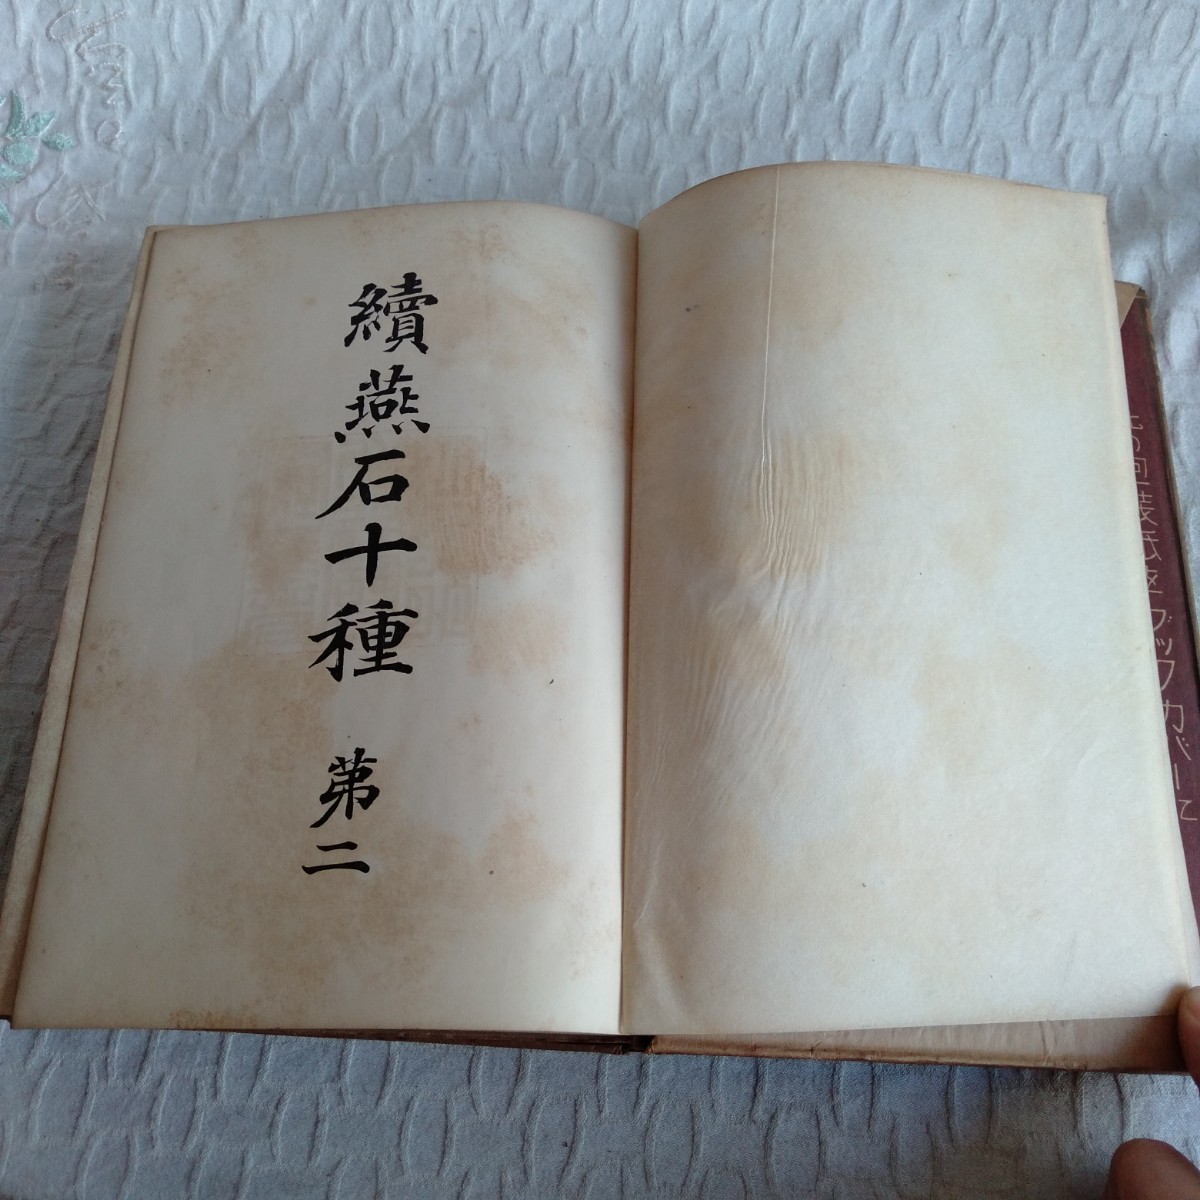 續燕石十種
第二
ブックカバーに